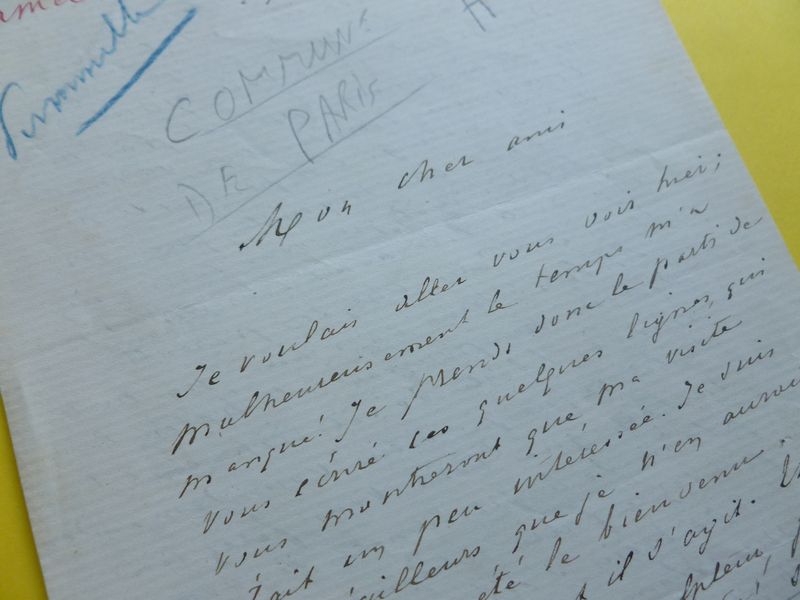 COMMUNE
DE PARIS
Mon cher ami
Je voulais aller vous voir hier;
malheureusement le temps m'a
manqué. Je prends donc le parti de
vous écrire ces quelques lignes, qui
vous montreront que ma visite
était un peu intéressée. Je suis
d'ailleurs que je n'en aurai
été le bienvenu.
il s'agit.